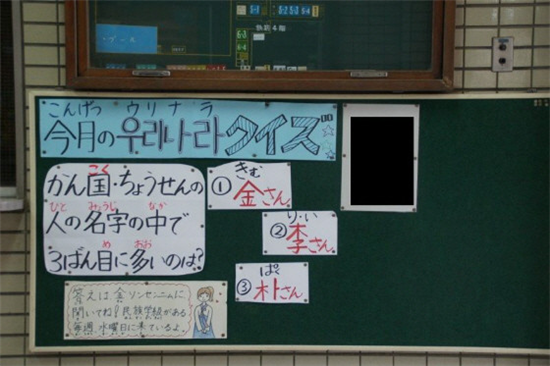 こんげつ ウリナラ
今月の우리나라クイズ
かん国・ちょうせんの
こく
人の名字の中で
ひと みょうじ なか
3ばん目に多いのは?
め おお
きむ
①金さん
り・い
②李さん
ぱく
③朴さん
答えは、金ソンセンニムに
聞いてね!民族学級がある
毎週 水曜日に来ているよ。